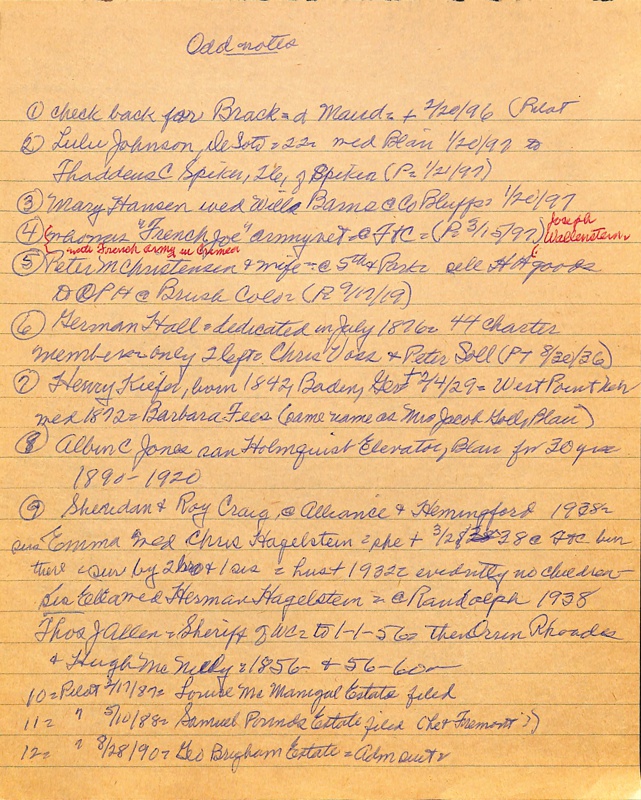 Odd notes
① check back for Brack = d Maud = + 2/20/96 (Pilot
② Lulu Johnson, DeSoto = 22 = wed Blair 1/20/97 to
Thaddeus C Spiker, 26, of Spiker (P = 1/21/97)
③ Mary Hansen wed Willa Barns @ Co Bluffs = 1/20/97
④ "French Joe" army vet = @ FtC = (P = 3/15/97) Joseph
Wallenstein
note French army in Crimea
⑤ Peter M Christensen & wife = @ 5th & Park = sell HH goods
D @ P H @ Brush Colo = (P 9/17/19)
⑥ German Hall = dedicated in July 1876 = 44 charter
members = only 2 left = Chris Voss & Peter Soll (PT 8/20/36)
⑦ Henry Kiefer, born 1842, Baden, Ger + 2/4/29 = West Point Neb
wed 1872 = Barbara Fees (same name as Mrs Jacob Blair)
⑧ Albin C Jones ran Holmquist Elevator, Blair for 30 yrs
1890-1920
⑨ Sheridan & Roy Craig, @ Alliance & Hemingford 1938 =
sis Emma wed Chris Hagelstein = she + 3/28/38 @ FtC bur
there = sur by 2 bro & 1 sis = husb + 1932 = evidently no children -
Sis Etta wed Herman Hagelstein = @ Randolph 1938
Thos J Allen = Sheriff of WC = to 1-1-56 = then Orrin Rhoades
& Hugh McNeely = 1856 - & 56-60 -
10 = Pilot 2/17/87 = Louise McManigal Estate filed
11 = " 5/10/88 = Samuel Pounds Estate filed (Let Fremont?)
12 = " 8/28/90 = Geo Brigham Estate = Adm